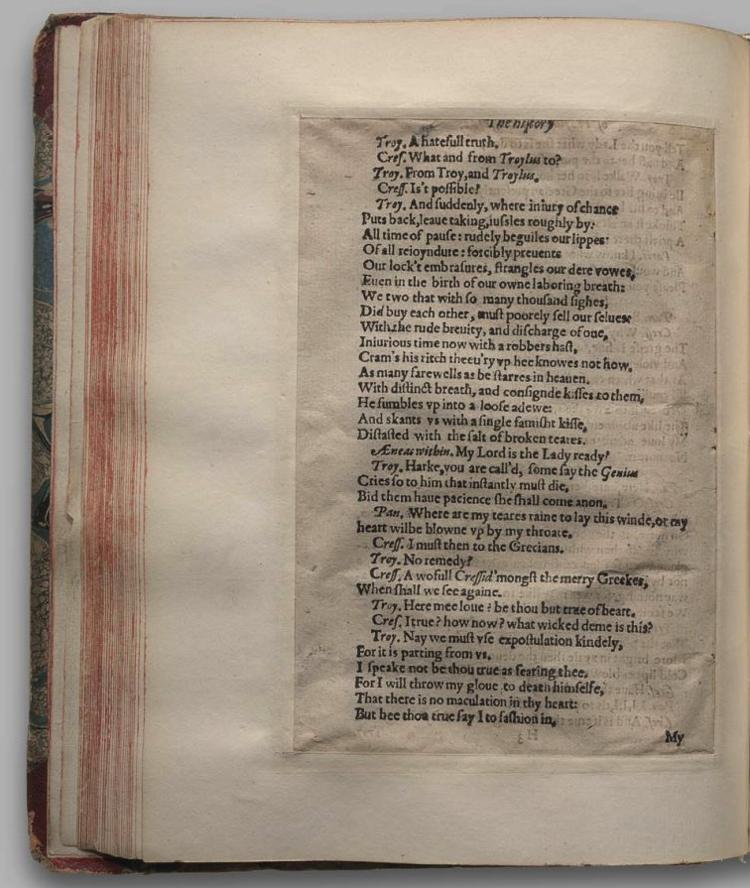 The history
Troy. A hatefull truth.
Cres. What and from Troylus to?
Troy. From Troy, and Troylus.
Cress. Is't possible?
Troy. And suddenly, where iniury of chance
Puts back, leaue taking, iussles roughly by:
All time of pause: rudely beguiles our lippes
Of all reioyndure: forcibly preuents
Our lock't embrasures, strangles our dere vowes,
Euen in the birth of our owne laboring breath:
We two that with so many thousand sighes,
Did buy each other, must poorely sell our selues
With the rude breuity, and discharge of one,
Iniurious time now with a robbers hast,
Cram's his ritch theeu'ry vp hee knowes not how.
As many farewells as be starres in heauen.
With distinct breath, and consignde kisses to them,
He fumbles vp into a loose adewe:
And skants vs with a single famisht kisse,
Distasted with the salt of broken teares.
Æneas within. My Lord is the Lady ready?
Troy. Harke, you are call'd, some say the Genius
Cries so to him that instantly must die,
Bid them haue pacience she shall come anon.
Pan. Where are my teares raine to lay this winde, or my
heart wilbe blowne vp by my throate.
Cress. I must then to the Grecians.
Troy. No remedy?
Cress. A wofull Cressid 'mongst the merry Greekes,
When shall we see againe.
Troy. Here mee loue: be thou but true of heart.
Cres. I true? how now? what wicked deme is this?
Troy. Nay we must vse expostulation kindely,
For it is parting from vs.
I speake not be thou true as fearing thee.
For I will throw my gloue to death himselfe,
That there is no maculation in thy heart:
But bee thou true say I to fashion in,
My